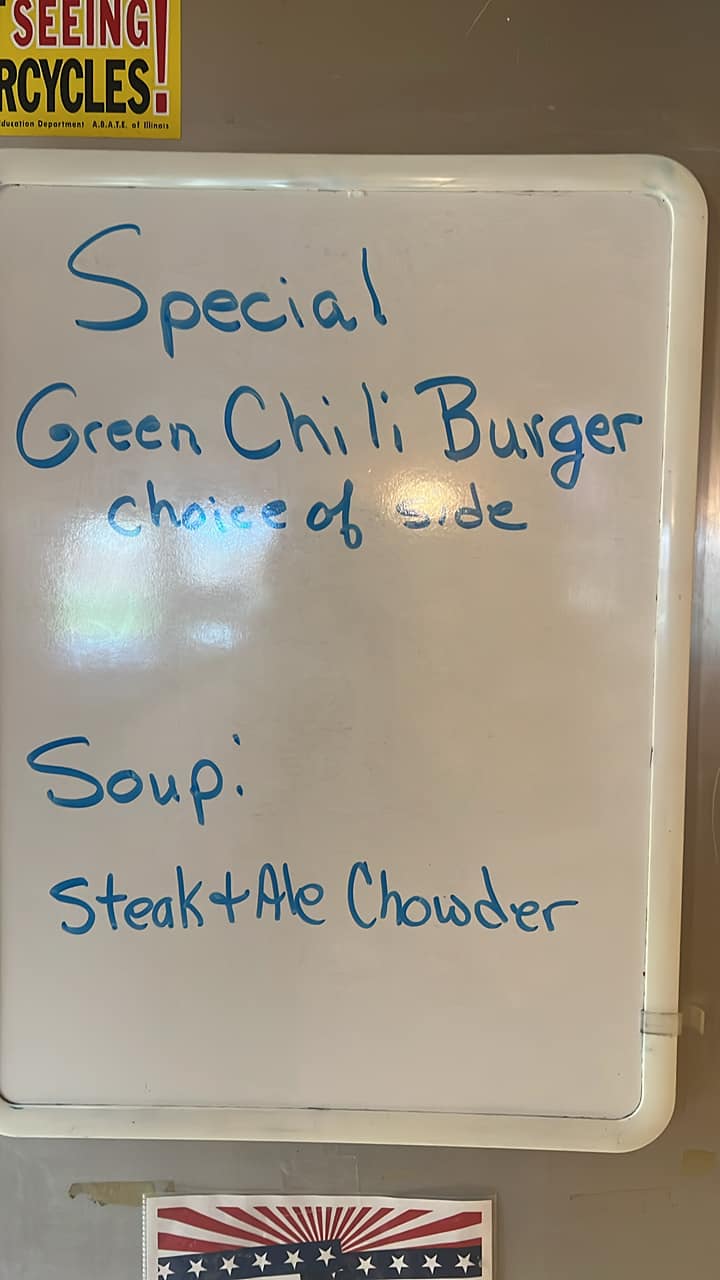 SEEING!
RCYCLES
Education Department A.B.A.T.E. of Illinois
Special
Green Chili Burger
choice of side
Soup:
Steak + Ale Chowder